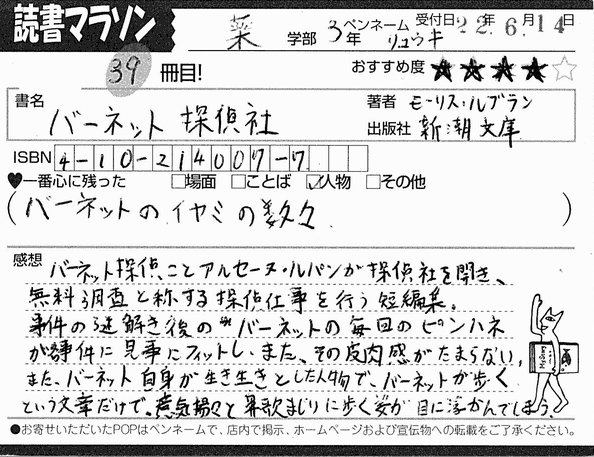 読書マラソン
薬 学部 3年 ペンネーム リュウキ 受付日 22年 6月 14日
39冊目! おすすめ度 ★★★★☆
書名 バーネット探偵社
著者 モーリス・ルブラン
出版社 新潮文庫
ISBN 4-10-214007-7
♥一番心に残った □場面 □ことば ☑人物 □その他
(バーネットのイヤミの数々)
感想 バーネット探偵ことアルセーヌ・ルパンが探偵社を開き、
無料調査と称する探偵仕事を行う短編集。
事件の謎解き後の バーネットの毎回のピンハネ
が事件に見事にフィットし、また、その皮肉感がたまらない。
また、バーネット自身が生き生きとした人物で、バーネットが歩く
という文章だけで、意気揚々と鼻歌まじりに歩く姿が目に浮かんでしまう。
●お寄せいただいたPOPはペンネームで、店内で掲示、ホームページおよび宣伝物への転載をご了承ください。